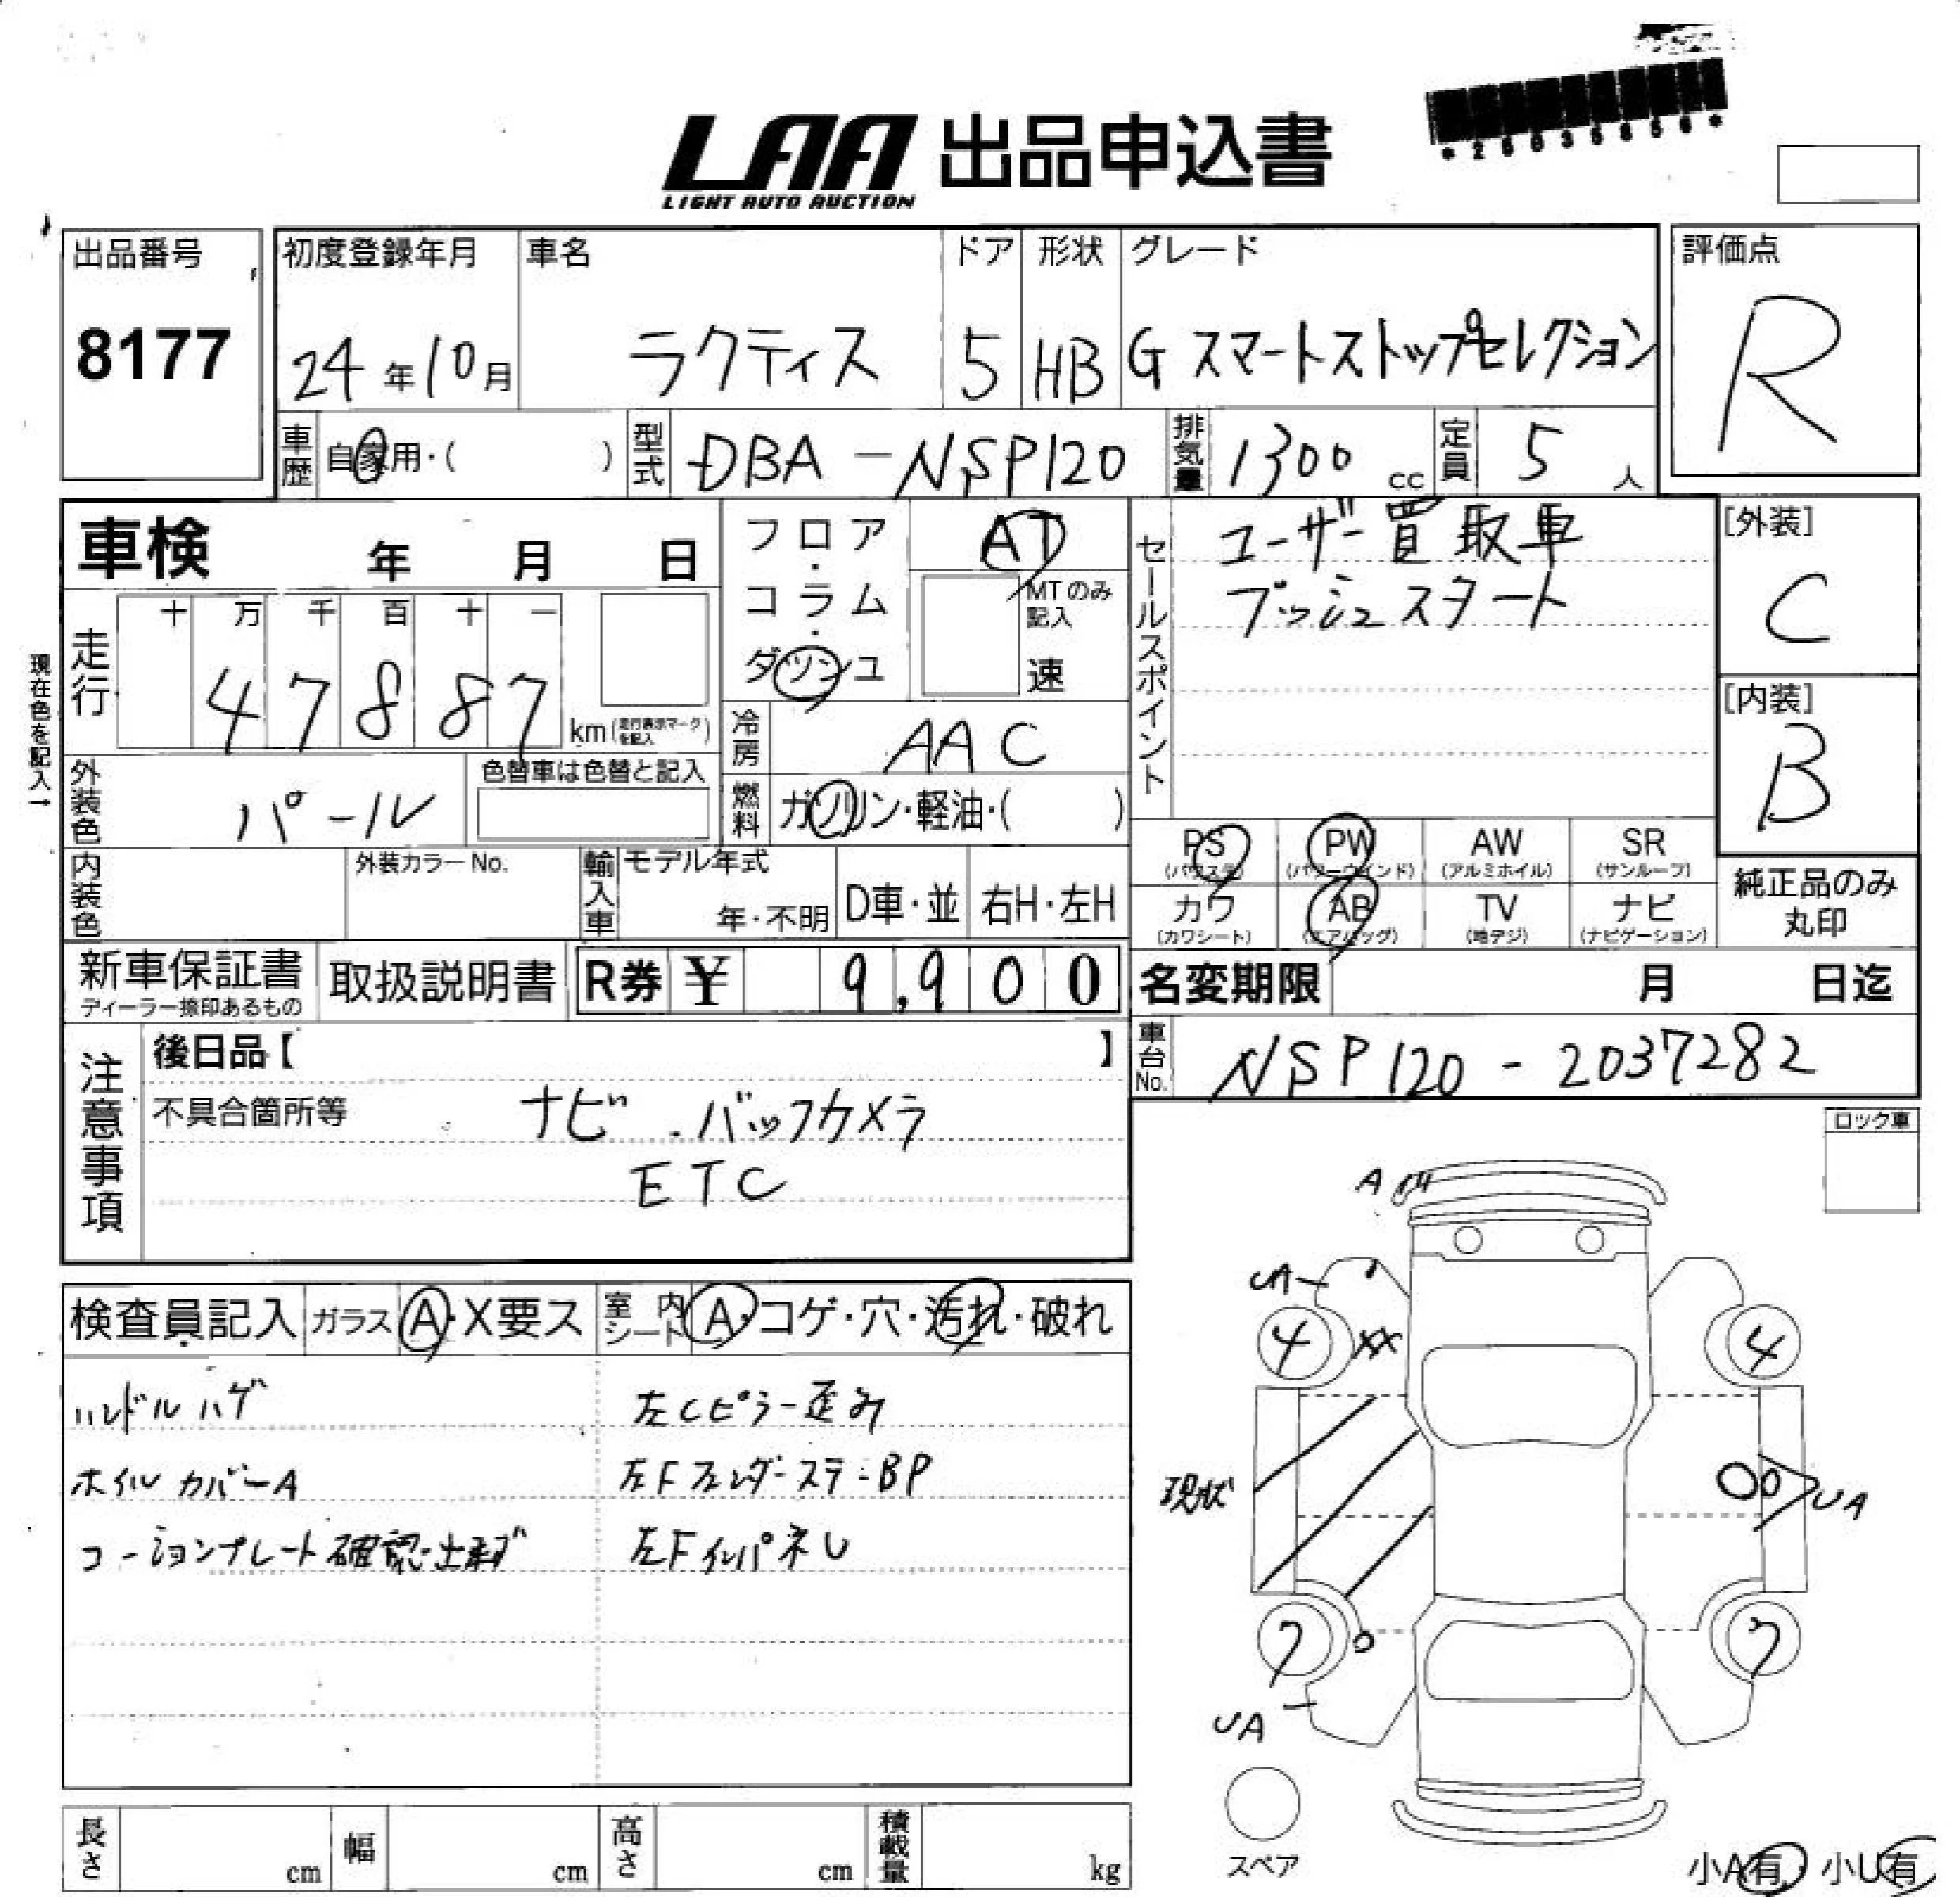 LAA 出品申込書
LIGHT AUTO AUCTION
*26035656*
出品番号
8177
初度登録年月
24年10月
車名
ラクティス
ドア
5
形状
HB
グレード
G スマートストップセレクション
評価点
R
車歴
自家用・( )
型式
DBA-NSP120
排気量
1300 cc
定員
5 人
車検 年 月 日
フロア・コラム・ダッシュ
AT
MTのみ記入
速
セールスポイント
ユーザー買取車
プッシュスタート
[外装]
C
[内装]
B
現在色を記入→
走行
十 万 千 百 十 一
4 7 8 8 7
km(走行表示マークを記入)
冷房
AAC
外装色
パール
色替車は色替と記入
燃料
ガソリン・軽油・( )
PS
(パワステ)
PW
(パワーウインド)
AW
(アルミホイル)
SR
(サンルーフ)
カワ
(カワシート)
AB
(エアバッグ)
TV
(地デジ)
ナビ
(ナビゲーション)
純正品のみ
丸印
内装色
外装カラーNo.
輸入車
モデル年式
年・不明
D車・並
右H・左H
新車保証書
ディーラー捺印あるもの
取扱説明書
R券 ¥ 9,900
名変期限 月 日迄
車台No.
NSP120-2037282
注意事項
後日品【 】
不具合箇所等
ナビ・バックカメラ
ETC
ロック車
検査員記入
ガラス A・X要ス
室内シート A・コゲ・穴・汚れ・破れ
ハンドルハゲ
ホイルカバーA
コーションプレート確認出来ず
左Cピラー歪み
左FフェンダーステーBP
左FインパネU
A
UA
4
XX
4
現状
UA
7
7
UA
スペア
小A有・小U有
長さ cm
幅 cm
高さ cm
積載量 kg